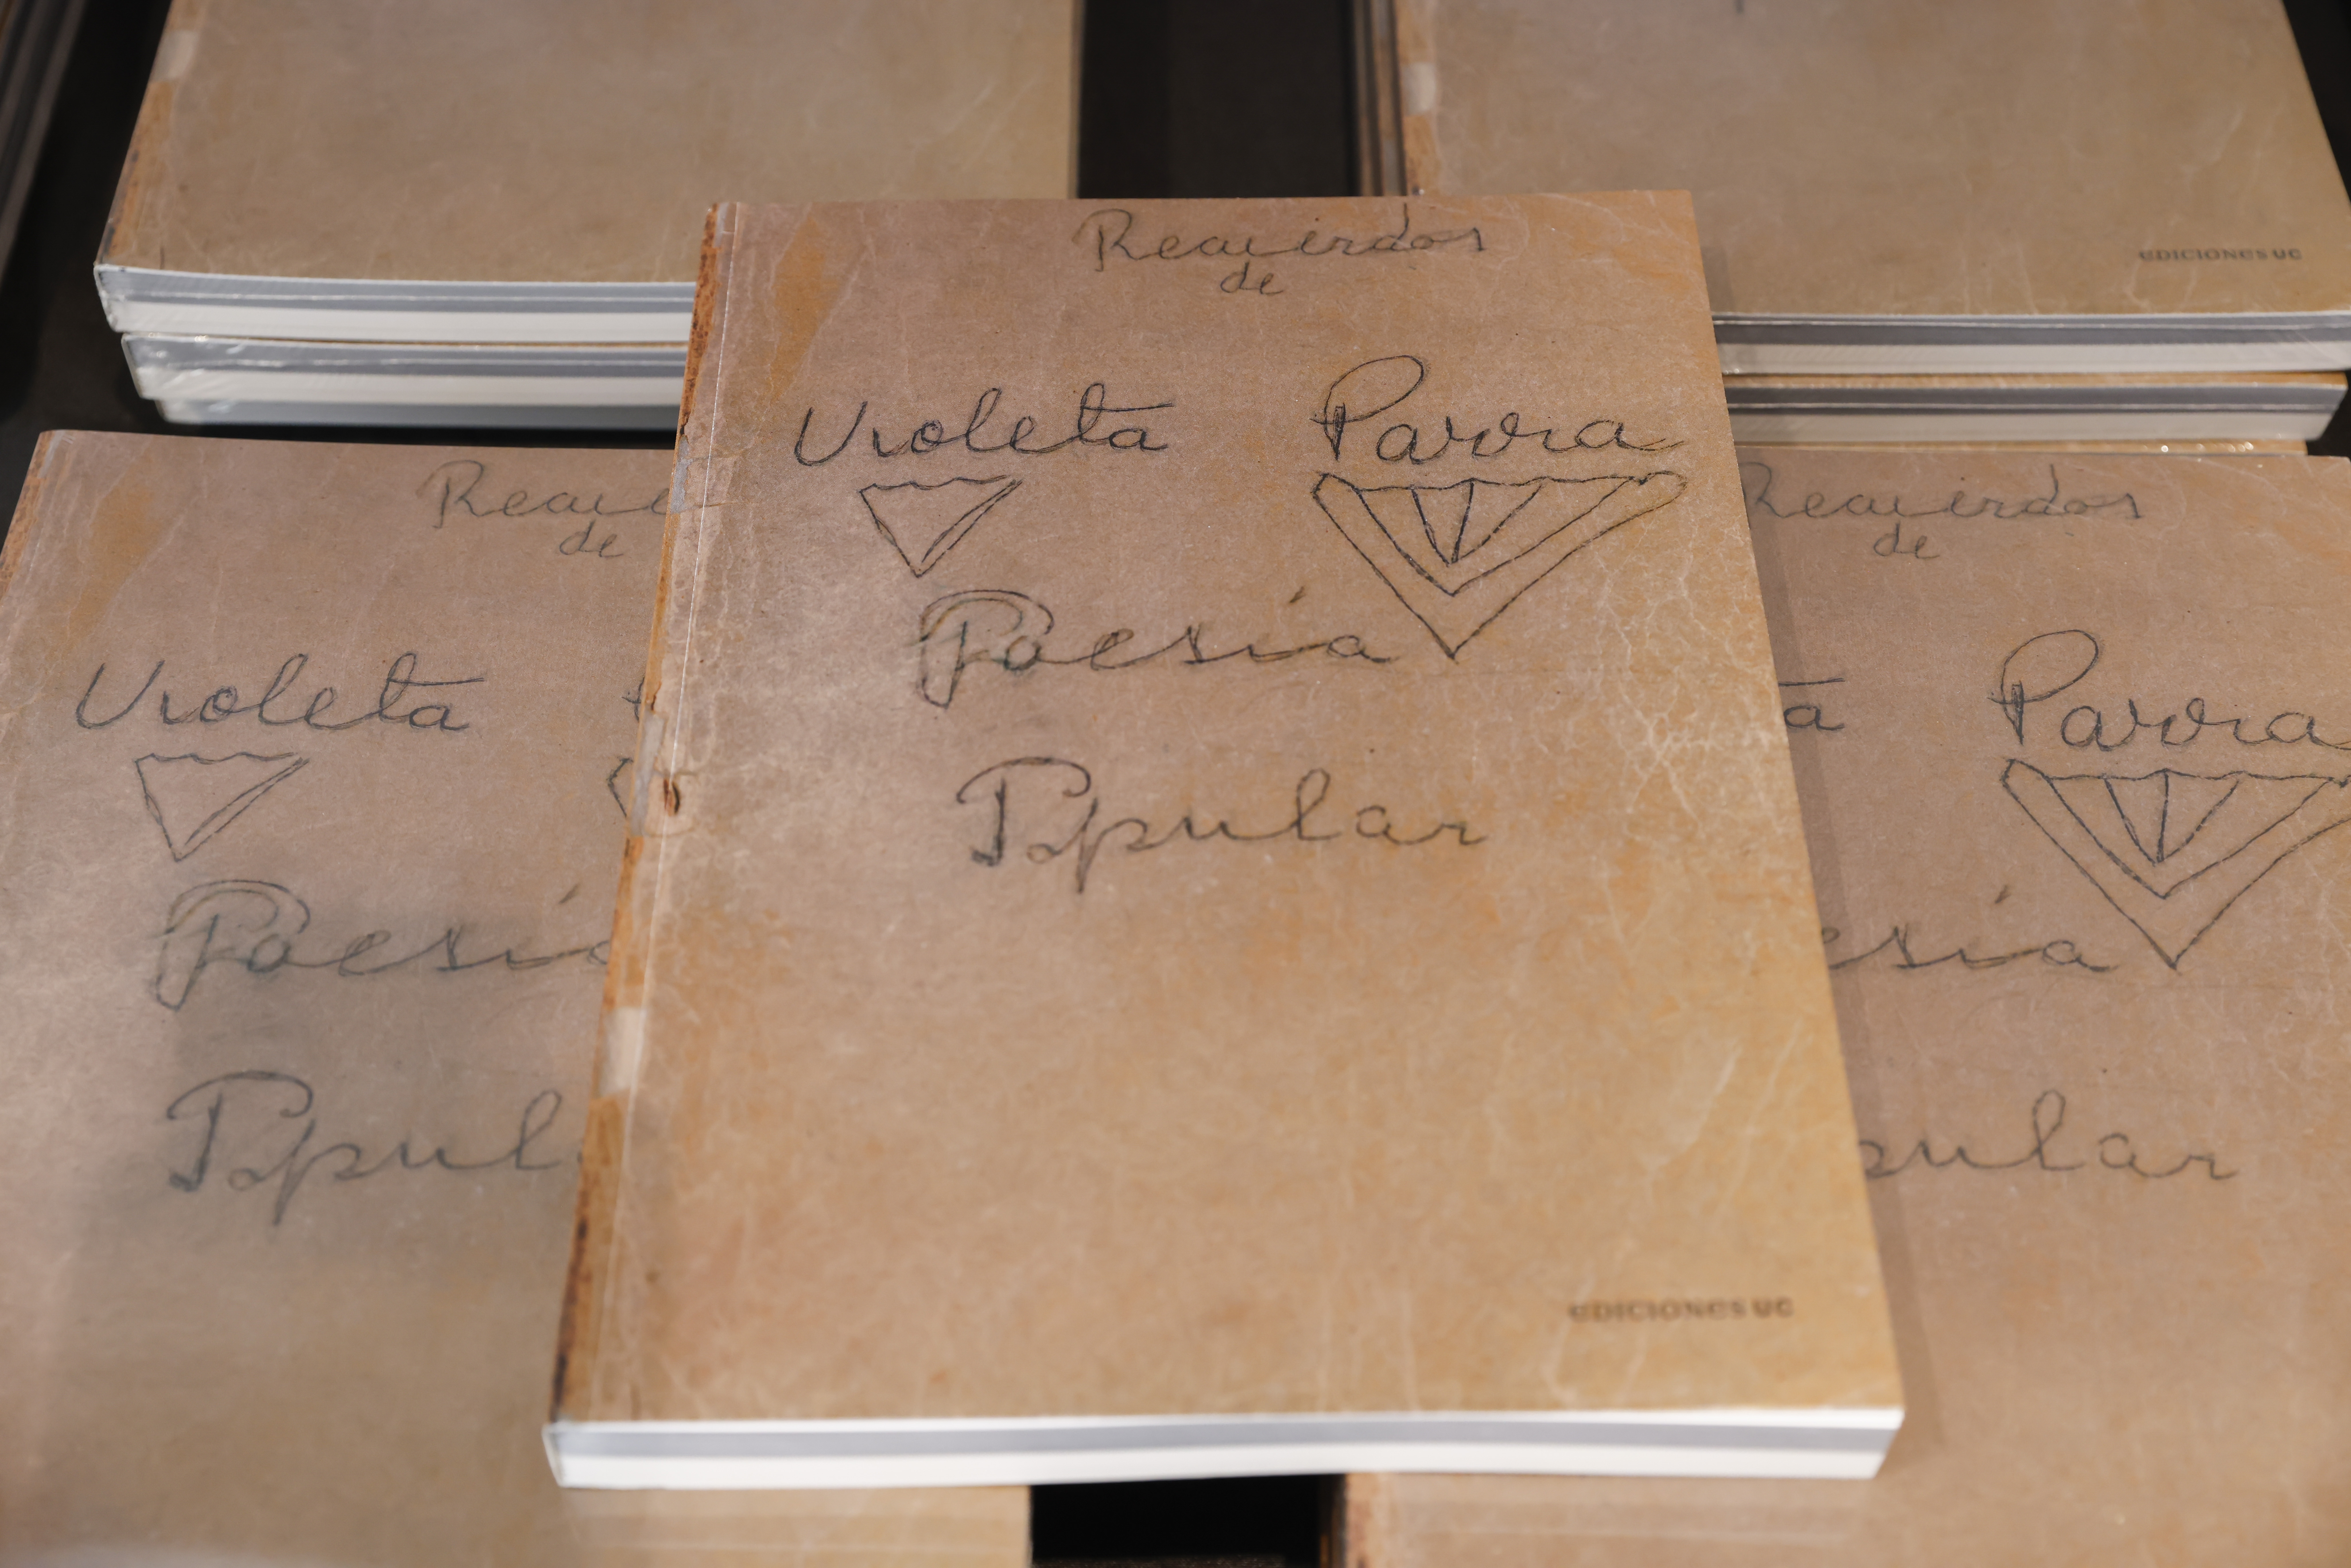 EDICIONES UC
Recuerdos
de
Violeta Parra
Poesía
Popular
EDICIONES UC
Recue
de
Violeta
Poesía
Popul
Recuerdos
de
ta Parra
esía
pular